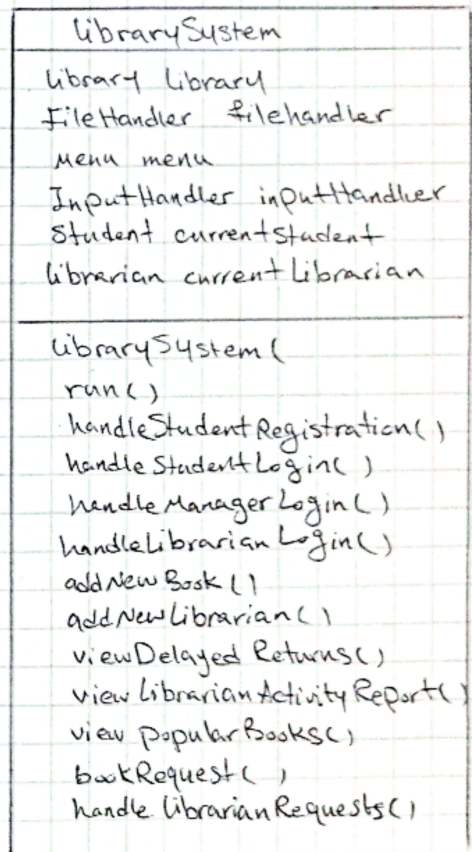 librarySystem
library library
FileHandler filehandler
Menu menu
InputHandler inputHandler
Student currentStudent
librarian currentLibrarian
librarySystem(
run()
handleStudentRegistration()
handleStudentLogin()
handleManagerLogin()
handleLibrarianLogin()
addNewBook()
addNewLibrarian()
viewDelayedReturns()
viewLibrarianActivityReport()
viewpopularBooks()
bookRequest()
handlelibrarianRequests()